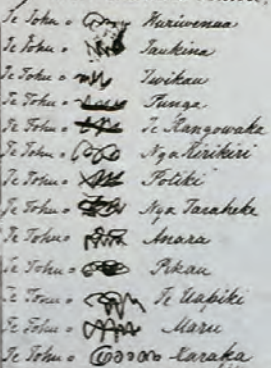 Te Tohu o Huriwenua
Te Tohu o Taukina
Te Tohu o Iwikau
Te Tohu o Tunga
Te Tohu o Te Rangowaka
Te Tohu o Nga Kirikiri
Te Tohu o Potiki
Te Tohu o Nga Tarakeke
Te Tohu o Anara
Te Tohu o Pikau
Te Tohu o Te Uapiki
Te Tohu o Maru
Te Tohu o Karaka